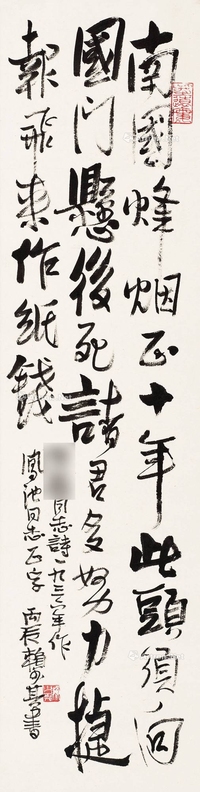 南國烽烟正十年此頭須向
國門懸後死諸君多努力捷
報飛來作紙錢
同志詩一九三六年作
鳳池同志正字 丙辰賴少其書